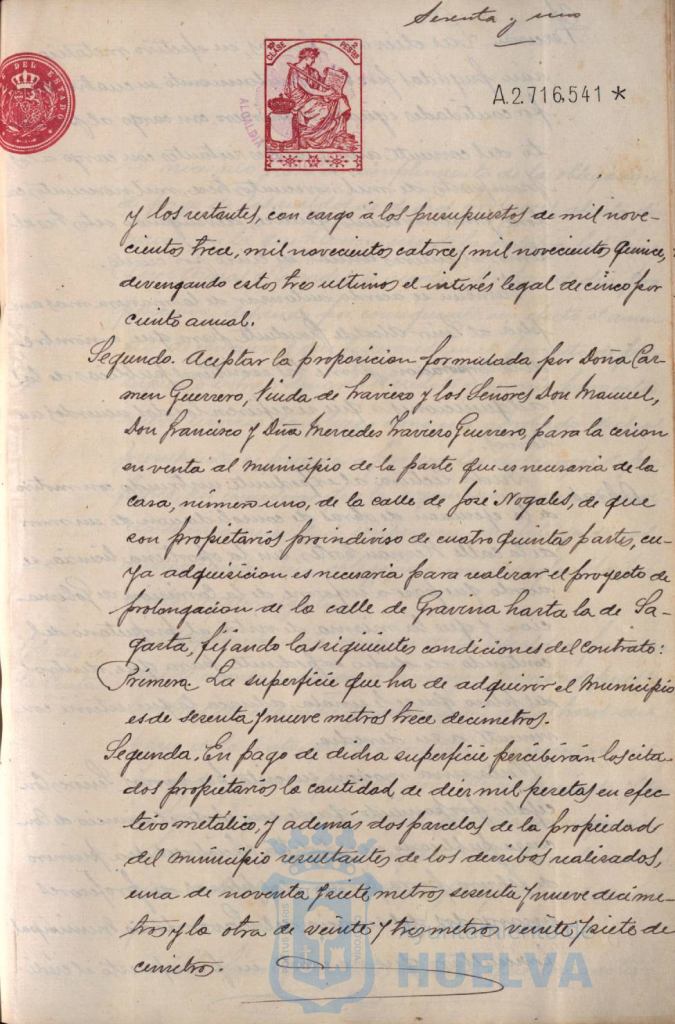 Sesenta y uno
DEL ESTADO
CLASE
PESETAS
ALCALDIA
A.2.716,541 *
y los restantes, con cargo á los presupuestos de mil nove-
cientos trece, mil novecientos catorce y mil novecientos quince,
devengando estos tres ultimos el interés legal de cinco por
ciento anual.
Segundo. Aceptar la proposicion formulada por Doña Car-
men Guerrero, Viuda de Traviero y los Señores Don Manuel,
Don Francisco y Dña Mercedes Traviero Guerrero, para la cesion
en venta al municipio de la parte que es necesaria de la
casa, número uno, de la calle de José Nogales, de que
son propietarios proindiviso de cuatro quintas partes, cu-
ya adquisicion es necesaria para realizar el proyecto de
prolongacion de la calle de Gravina hasta la de Sa-
gasta, fijando las siguientes condiciones del contrato:
Primera. La superficie que ha de adquirir el Municipio
es de sesenta y nueve metros trece decimetros.
Segunda. En pago de dicha superficie percibirán los cita-
dos propietarios la cantidad de diez mil pesetas en efec-
tivo metálico, y además dos parcelas de la propiedad
del Municipio resultantes de los derribos realizados,
una de noventa y siete metros sesenta y nueve decime-
tros y la otra de veinte y tres metros veinte y siete de-
cimetros.
HUELVA